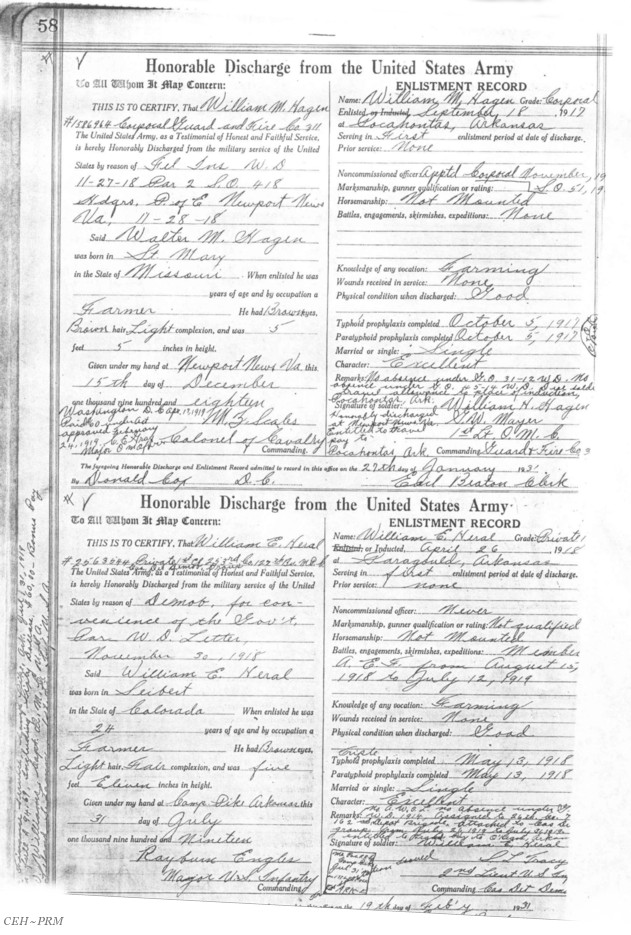 58
Honorable Discharge from the United States Army
To All Whom It May Concern:
THIS IS TO CERTIFY, That William M. Hagen
Corporal Guard and Fire Co 311
The United States Army, as a Testimonial of Honest and Faithful Service,
is hereby Honorably Discharged from the military service of the United
States by reason of Tel Ins W. D
11-27-18 Par 2 S.O. 418
Hdqrs. P of E Newport News
Va, 11-28-18
Said Walter M. Hagen
was born in St. Mary
in the State of Missouri When enlisted he was
years of age and by occupation a
Farmer He had Brown eyes,
Brown hair, Light complexion, and was 5
feet 5 inches in height.
Given under my hand at Newport News Va. this
15th day of December
one thousand nine hundred and eighteen
Washington D.C.
M. Z. Scales
approved February
Colonel of Cavalry
Commanding.
ENLISTMENT RECORD
Name: William M. Hagen Grade: Corporal
Enlisted, or Inducted, September 18, 1917
at Pocahontas, Arkansas
Serving in First enlistment period at date of discharge.
Prior service: None
Noncommissioned officer: Apptd Corporal November, 19
Marksmanship, gunner qualification or rating: S.O. 51, 19
Horsemanship: Not Mounted
Battles, engagements, skirmishes, expeditions: None
Knowledge of any vocation: Farming
Wounds received in service: None
Physical condition when discharged: Good
Typhoid prophylaxis completed October 5, 1917
Paratyphoid prophylaxis completed October 5, 1917
Married or single: Single
Character: Excellent
Remarks: No absence under G.O. 31-12 W.D. No
absence under G.O. 45-14 W.D.
travel allowance to place of induction,
Pocahontas Ark.
Signature of soldier: William H. Hagen
Honorably discharged
at Newport News Va. S. W. Mayer
entitled to travel 1st Lt. Q. M. C.
pay to
Pocahontas, Ark Commanding Guard & Fire Co 3
The foregoing Honorable Discharge and Enlistment Record admitted to record in this office on the 27th day of January 1931
By Donald Cox D.C. Earl Beaton Clerk
Honorable Discharge from the United States Army
To All Whom It May Concern:
THIS IS TO CERTIFY, That William E. Heral
The United States Army, as a Testimonial of Honest and Faithful Service,
is hereby Honorably Discharged from the military service of the United
States by reason of Demob, for con-
venience of the Gov't,
W. D. Letter,
November 30, 1918
Said William E. Heral
was born in Seibert
in the State of Colorada When enlisted he was
24 years of age and by occupation a
Farmer He had Brown eyes,
Light hair, Fair complexion, and was five
feet Eleven inches in height.
Given under my hand at Camp Pike Arkansas this
31 day of July
one thousand nine hundred and Nineteen
Rayburn Engles
Major U.S. Infantry
Commanding
ENLISTMENT RECORD
Name: William E. Heral Grade: Private 1
Enlisted, or Inducted, April 26, 1918
at Paragould, Arkansas
Serving in first enlistment period at date of discharge.
Prior service: none
Noncommissioned officer: Never
Marksmanship, gunner qualification or rating: Not qualified
Horsemanship: Not Mounted
Battles, engagements, skirmishes, expeditions: Member
A. E. F. from August 15,
1918 to July 12, 1919
Knowledge of any vocation: Farming
Wounds received in service: None
Physical condition when discharged: Good
Triple
Typhoid prophylaxis completed May 13, 1918
Paratyphoid prophylaxis completed May 13, 1918
Married or single: Single
Character: Excellent
Remarks:
Signature of soldier: William E. Heral
S. L. Tracy
2nd Lieut U.S.
Commanding Cas Det Demo
19th day of Feb'y 1931
CEH~PRM